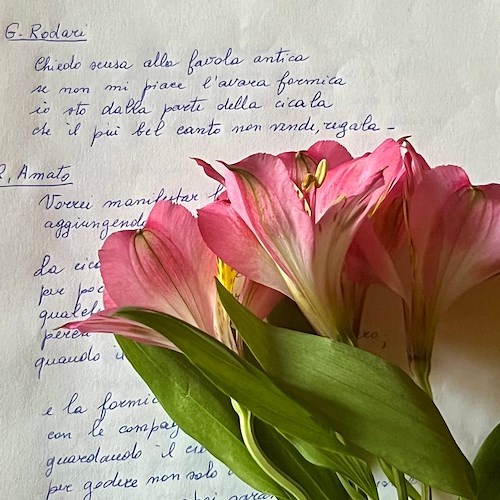 G. Rodari
Chiedo scusa alla favola antica
se non mi piace l'avara formica
io sto dalla parte della cicala
che il più bel canto non vende, regala -
R. Amato
Vorrei manifestar
aggiungendo
La cic
per poc
qualch
perch
quando i
e la formic
con le compag
guardando il ci
per godere non solo